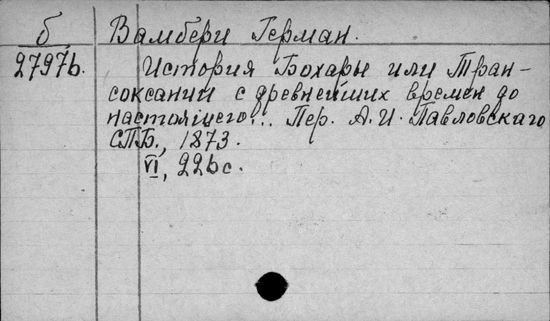 б Вамбери Герман.
27976. История Бохары или Тран-
соксании с древнейших времен до
настоящего... Пер. А. И. Павловскаго
СПБ., 1873.
VI, 226 с.